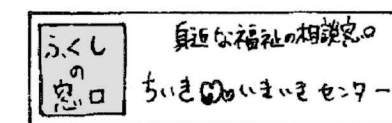 ふくし
の
窓口
身近な福祉の相談窓口
ちいきのいきいきセンター